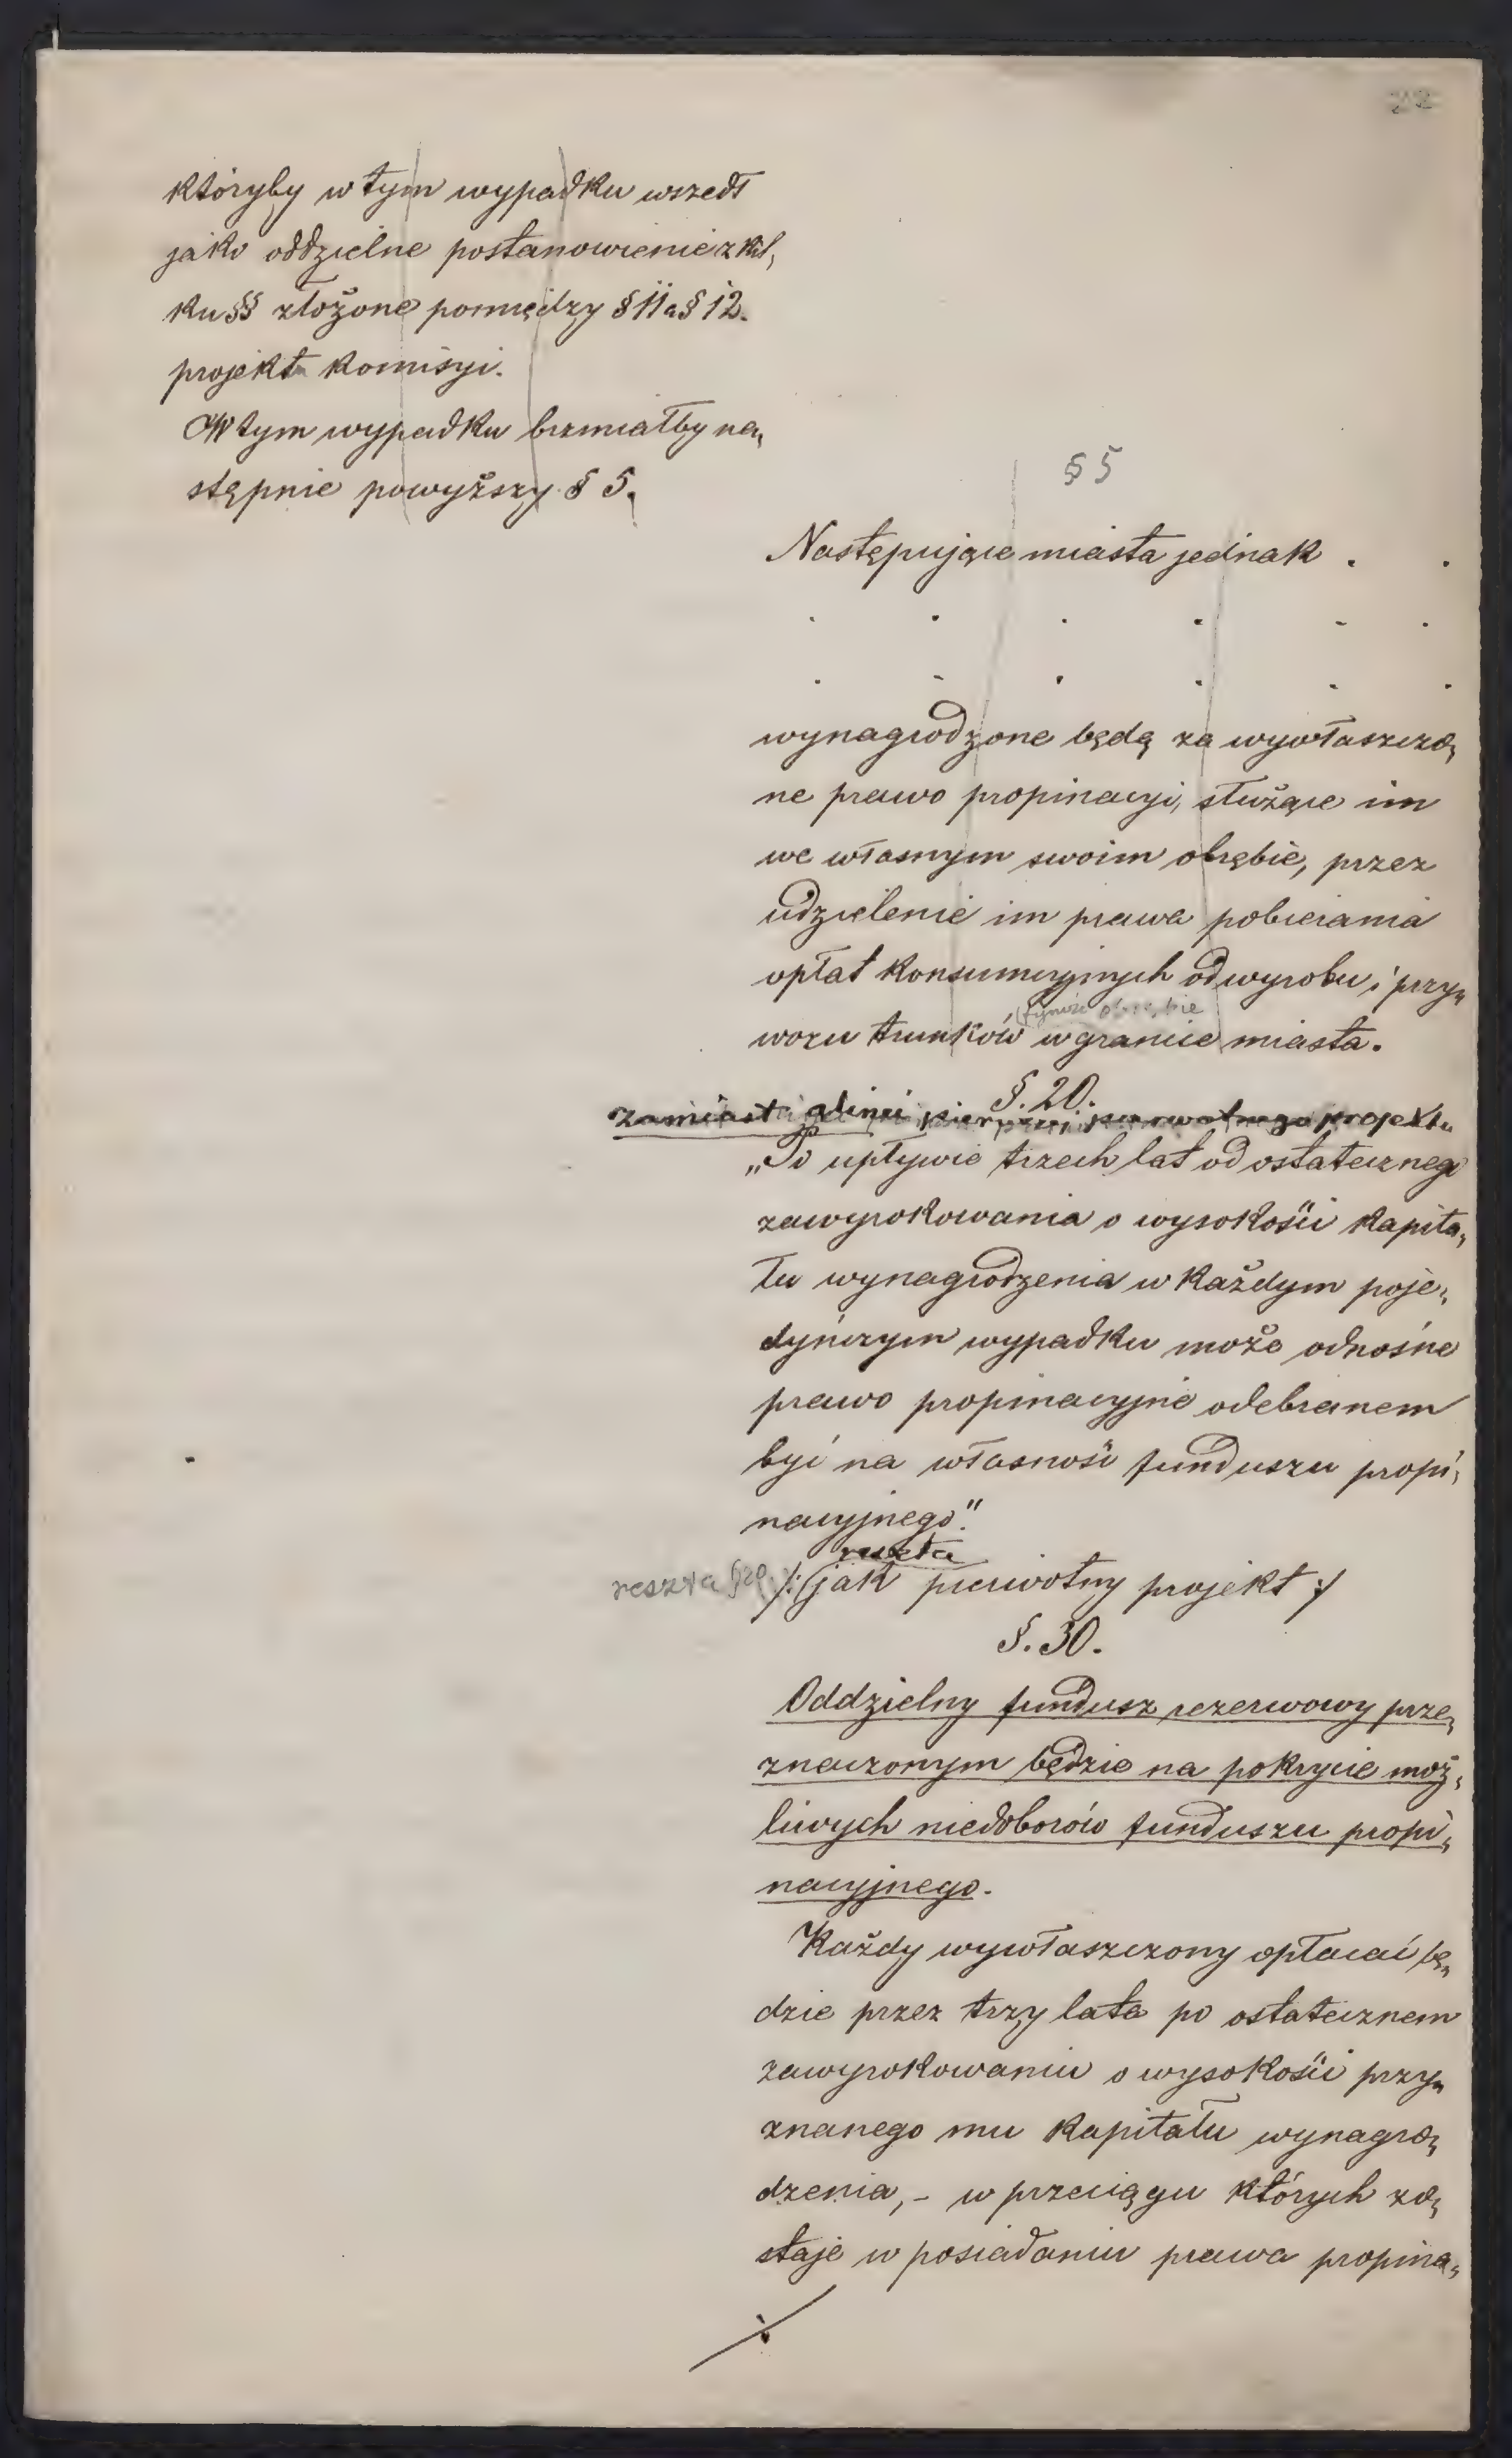 któryby w tym wypadku wszedł
jako oddzielne postanowienie z kil„
ku §§ złożone pomiędzy § 11 a § 12.
projektu komisyi.
W tym wypadku brzmiałby na„
stępnie powyższy § 5.
§ 5
Następujące miasta jednak . .
. . . . . .
. . . . . .
wynagrodzone będą za wywłaszczo„
ne prawo propinacyi, służące im
we własnym swoim obrębie, przez
udzielenie im prawa pobierania
opłat konsumcyjnych od wyrobu i przy„
obrębie
wozu trunków w granice miasta.
§. 20.
zamiast alinei pierwszej pierwotnego projektu
„Po upływie trzech lat od ostatecznego
zawyrokowania o wysokości kapita„
łu wynagrodzenia w każdym poje„
dyńczym wypadku może odnośne
prawo propinacyjne odebranem
być na własność funduszu propi„
nacyjnego."
reszta
reszta §20. /: jak pierwotny projekt :/
§. 30.
Oddzielny fundusz rezerwowy prze„
znaczonym będzie na pokrycie moż„
liwych niedoborów funduszu propi„
nacyjnego.
Każdy wywłaszczony opłacać bę„
dzie przez trzy lata po ostatecznem
zawyrokowaniu o wysokości przy„
znanego mu kapitału wynagro„
dzenia, - w przeciągu których zo„
staje w posiadaniu prawa propina„
./.